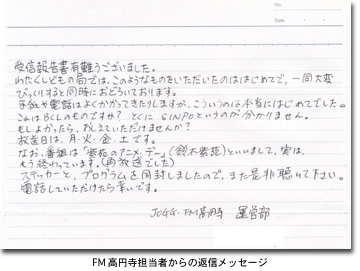 No.
Date
受信報告書有難うございました。
わたくしどもの局では、このようなものをいただいたのははじめてで、一同大変
びっくりすると同時におどろいております。
手紙や電話はよくかかってきたりしますが、こういうのは本当にはじめてでした。
これはBCLのものですか? とくにSINPOというのが分かりません。
もしよかったら、おしえていただけませんか?
放送日は、月・火・金・土です。
なお、番組は「紫苑のアニメ・デー」(鈴木紫苑)といいまして、実は、
もう終わっています。(再放送でした)
ステッカーと、プログラムを同封しましたので、また是非聴いて下さい。
電話していただけたら幸いです。
JOGG-FM高円寺 運営部
FM高円寺担当者からの返信メッセージ